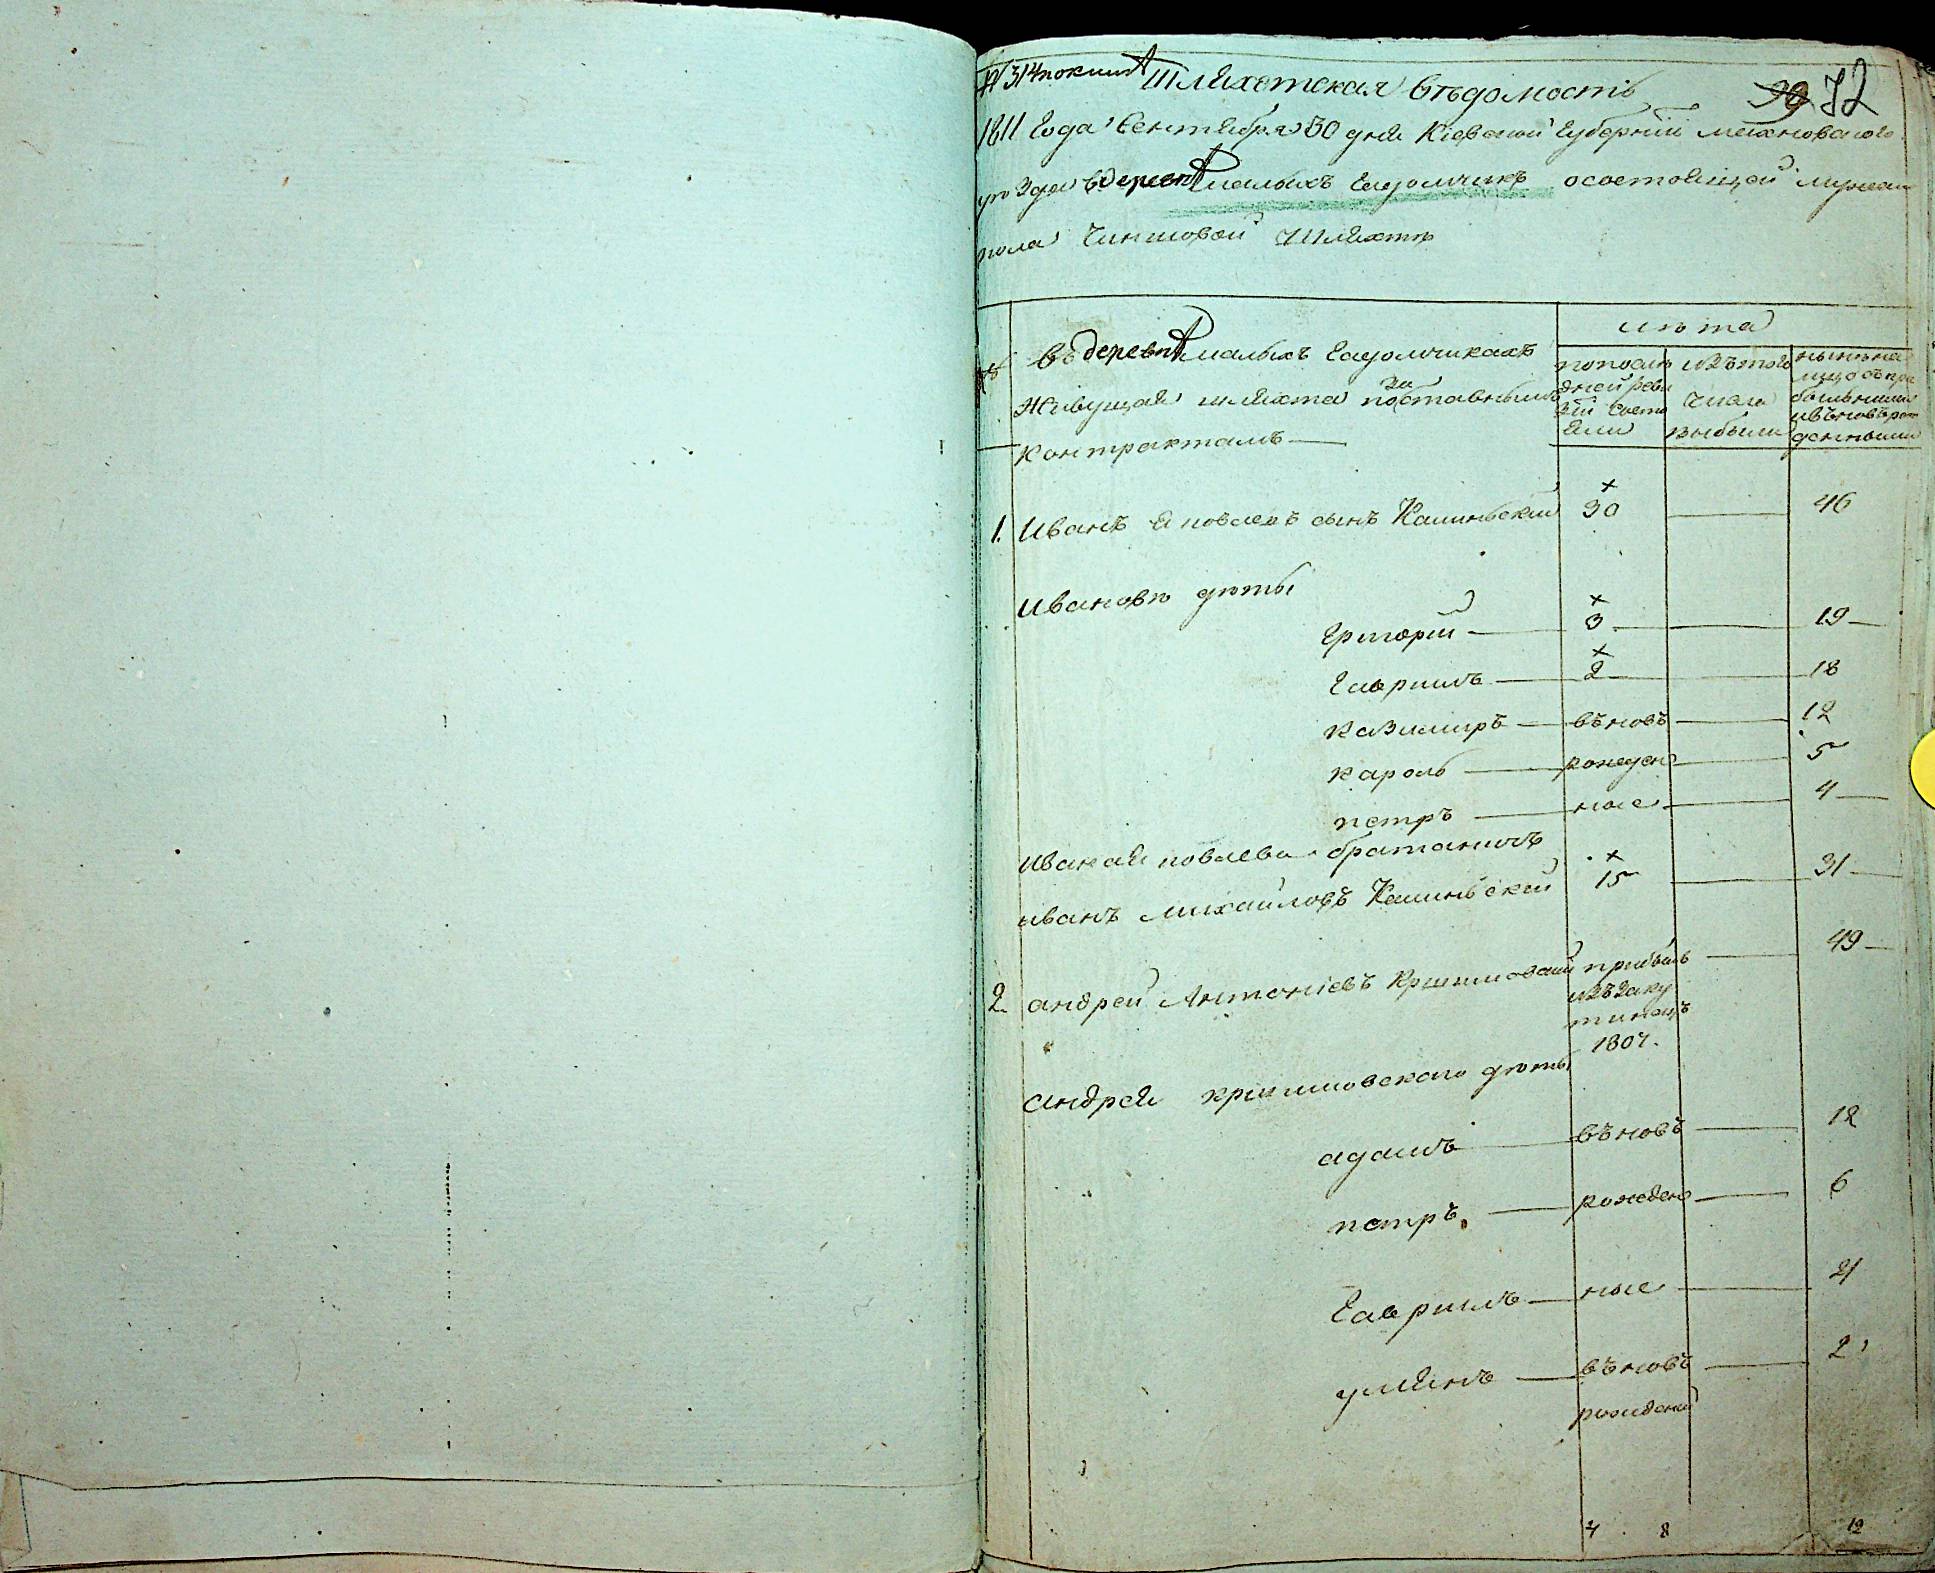 № 314 по книг
Шляхетская вѣдомость
39 72
1811 Года Сентября 30 дня Кіевской Губерніи Махновского
уѣзда вдеревнѣ малыхъ Гадомчикъ осостоящей мужеска
пола Чиншовой Шляхтѣ
№
Въ деревнѣ малыхъ Гадомчикахъ
Живущая шляхта по поставнымъ
Контрактамъ
лѣта
попослѣ
дней реви
зіи состо
яли
изъ того
числа
выбыли
нынѣ на
лицо съ при
былыми
ивъновь рож
денными
1. Иванъ сынъ Калинѣский 30 46
Ивановы дѣты
Григорій 3 19
Гаврилъ 2 18
Казимиръ вѣновь 12
Кароль рожден 5
петръ ные 4
братаничъ
иванъ михайловъ Калинѣский 15 31
2. андрей Антоніевъ прибылъ 49
изъ
1807.
Андрея дѣты
адамъ вѣновь 12
петръ рожден 6
Гаврилъ ные 4
улянъ вѣновь 2
рожденый
4 8 12